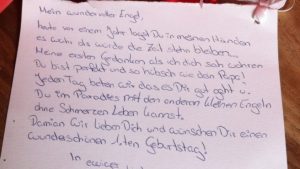 Mein wundervoller Engel,
heute vor einem Jahr lagst Du in meinen Händen
es war als würde die Zeit stehn bleiben.
Meine ersten Gedanken als ich dich sah waren
Du bist perfekt und so hübsch wie dein Papa!
Jeden Tag beten wir das es Dir gut geht u.
Du im Paradies mit den anderen kleinen Engeln
ohne Schmerzen Leben kannst.
Damian Wir lieben Dich und wünschen Dir einen
wunderschönen 1.ten Geburtstag!
In ewiger